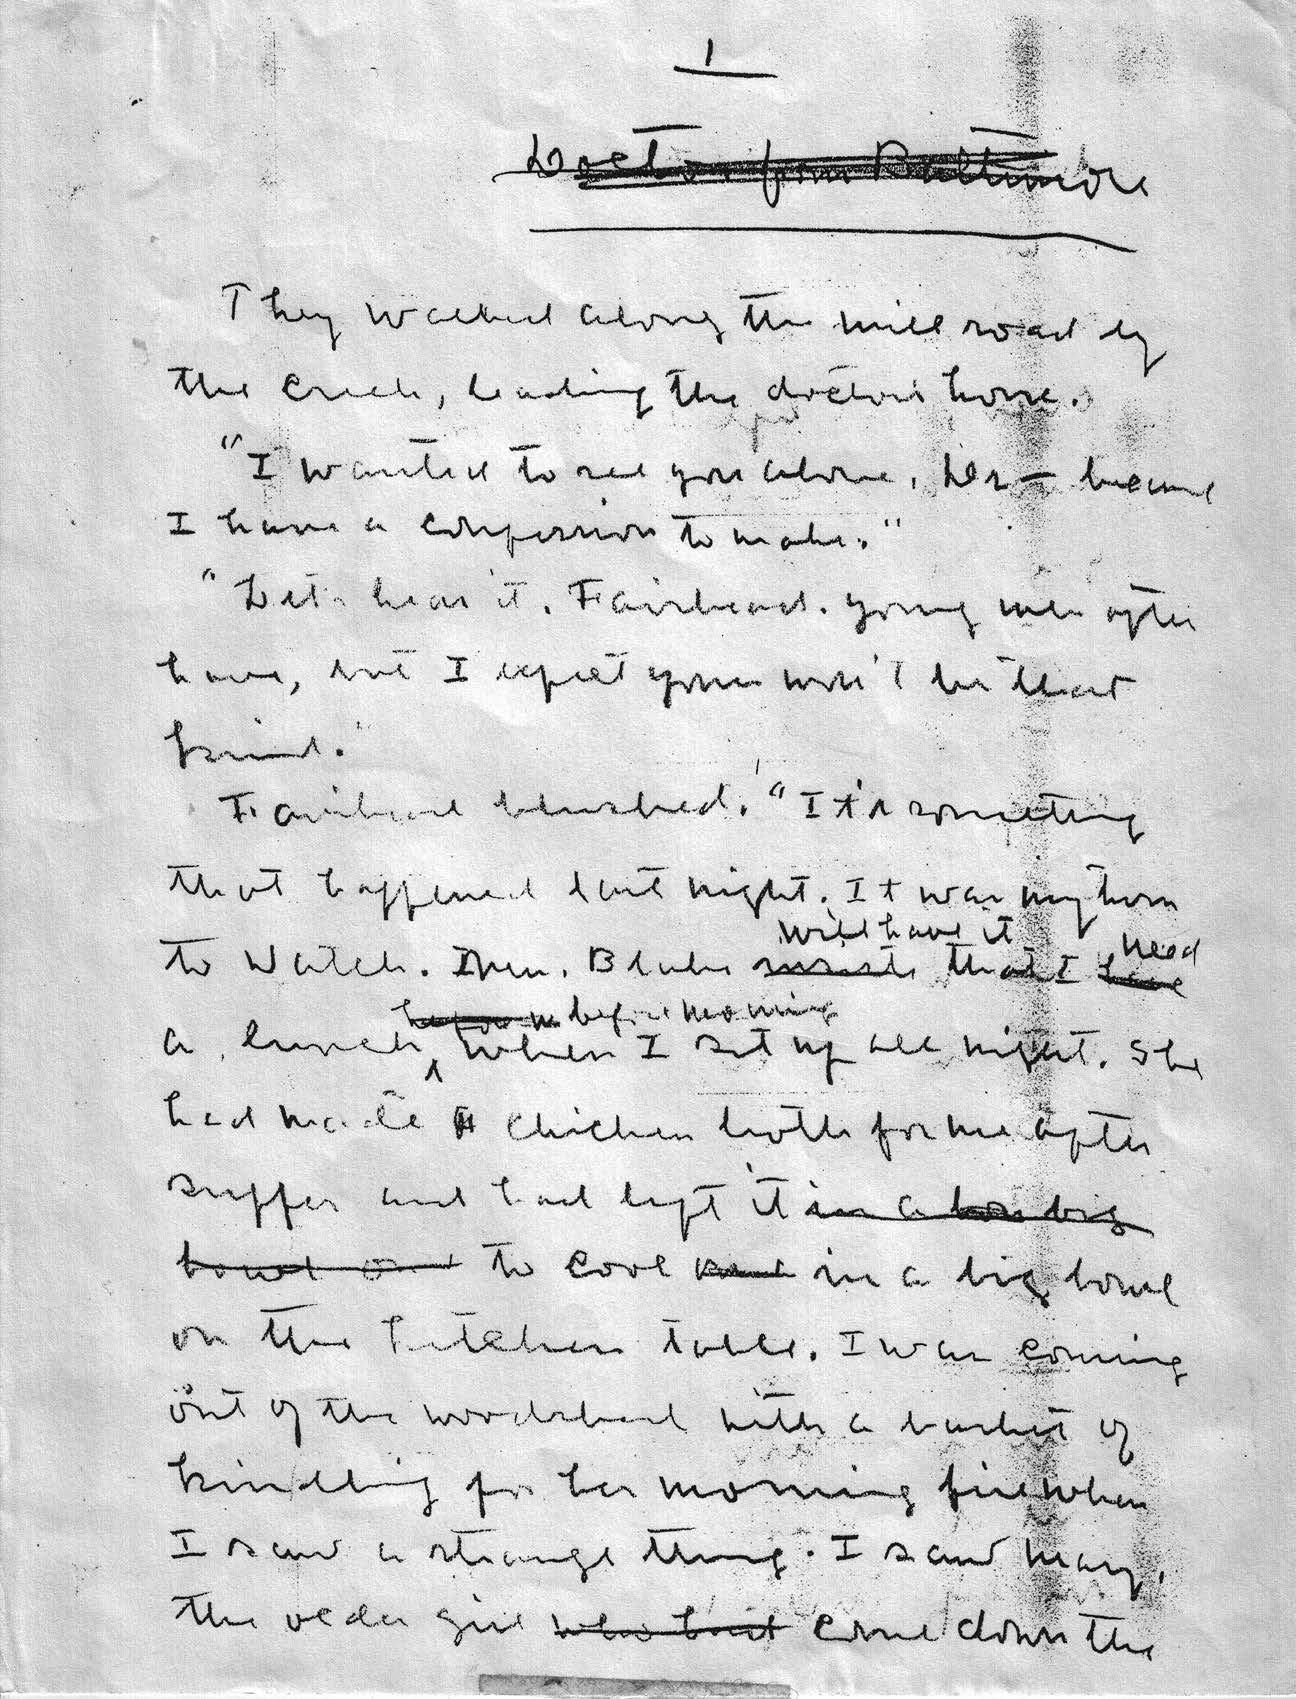 1
Doctor from Baltimore
They walked along the mill road by
the creek, leading the doctor's horse.
"I wanted to see you alone, Dr — because
I have a confession to make."
"Let's hear it, Fairhead. Young men often
have, but I expect yours won't be that
kind."
Fairhead blushed. "It's something
that happened last night. It was my turn
will have it need
to watch. Mrs. Blake insists that I have
before m before morning
a lunch when I sit up all night. She
had made chicken broth for me after
supper and had left it in a big
bowl and to cool and in a big bowl
on the kitchen table. I was coming
out of the woodshed with a basket of
kindling for her morning fire when
I saw a strange thing. I saw Mary,
the older girl who had come down the